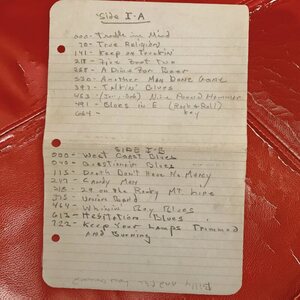 Side I-A
000- Trouble in Mind
70- True Religion
141- Keep on Truckin'
218- Five Foot Two
268- A Dime For Beer
330- Another Man Done Gone
393- Talkin' Blues
463- Nine Pound Hammer
491- Blues in E (Rock & Roll)
604- key
SIDE I-B
000- West Coast Blues
Blues
115- Death Don't Have No Mercy
247- Candy Man
318- 29 on the Rocky Mt Line
375- Union Band
464- Whinin' Boy Blues
612- Hesitation Blues
722- Keep Your Lamps Trimmed
and Burning
Billy and the